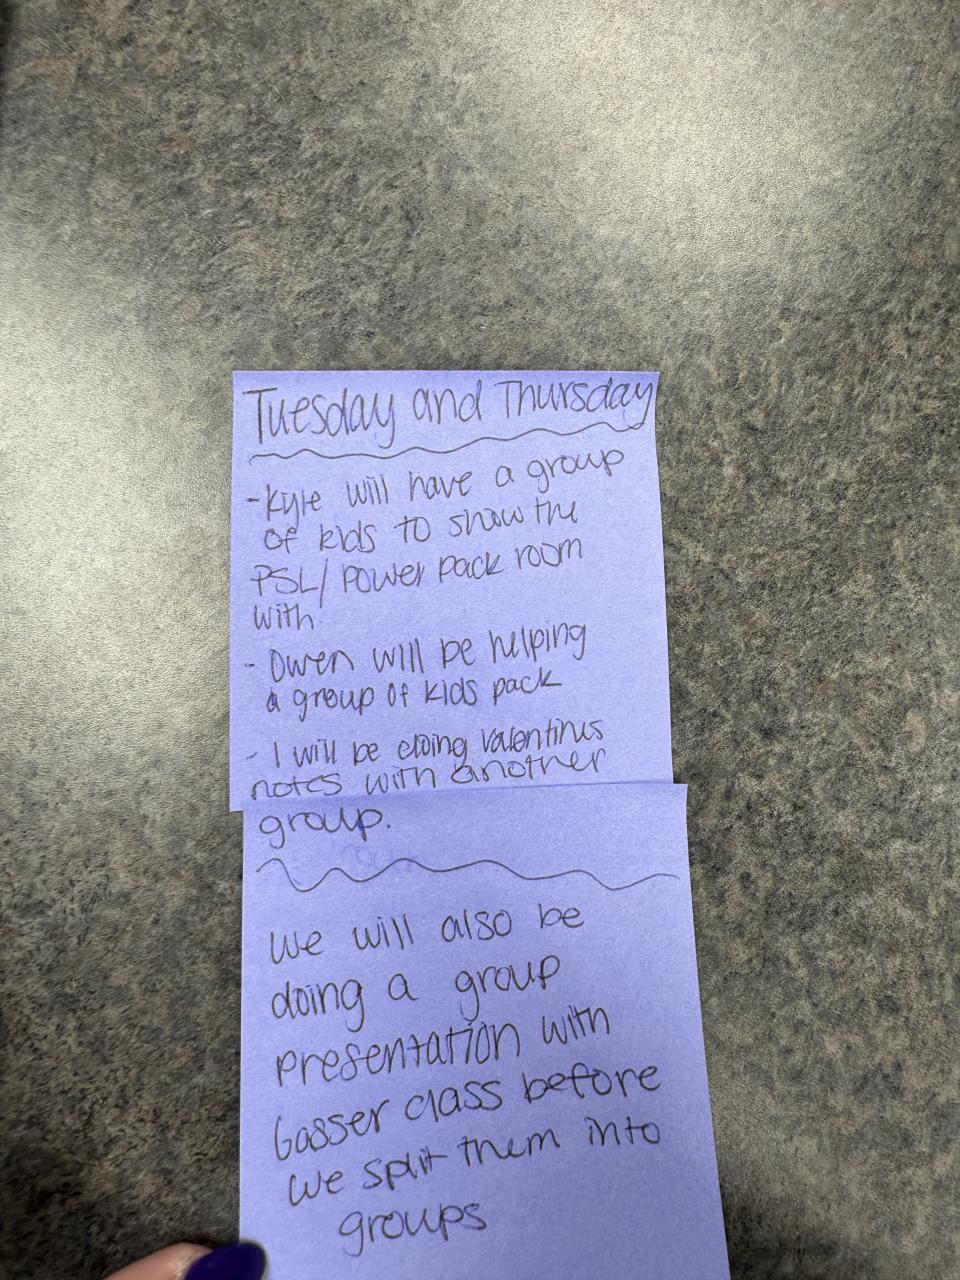 Tuesday and Thursday
- Kyle will have a group
of kids to show the
PSL/ Power pack room
with.
- Owen will be helping
a group of kids pack
- I will be doing valentines
notes with another
group.
we will also be
doing a group
presentation with
Gosser class before
we split them into
groups